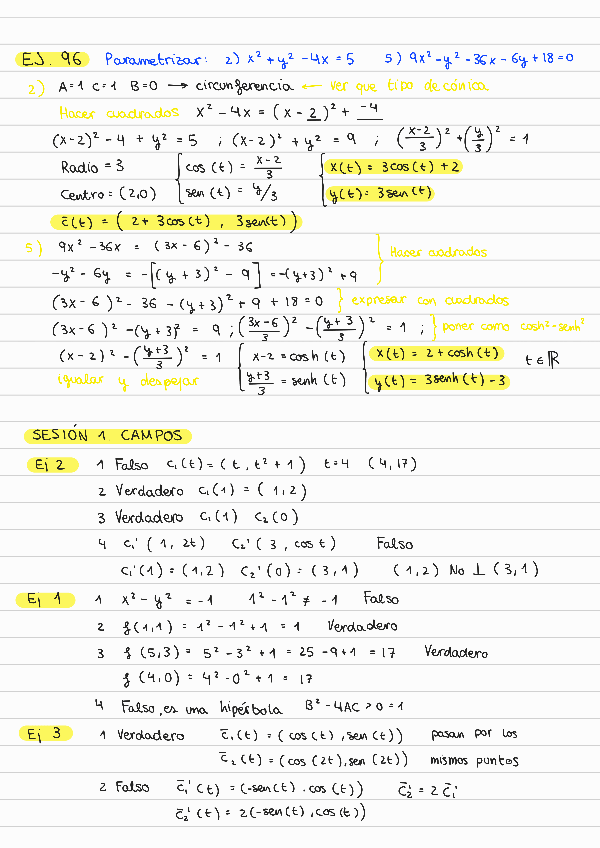 EJ. 96 Parametrizar: 2) x² + y² - 4x = 5 5) 9x² - y² - 36x - 6y + 18 = 0
2) A=1 C=1 B=0 → circunferencia ← ver que tipo de cónica
Hacer cuadrados x² - 4x = (x - 2)² + -4
(x-2)² - 4 + y² = 5 ; (x-2)² + y² = 9 ; (x-2/3)² + (y/3)² = 1
Radio = 3 { cos (t) = x-2/3 { x(t) = 3cos(t) + 2
Centro = (2,0) sen (t) = y/3 y(t) = 3sen(t)
c̄(t) = (2 + 3cos(t), 3sen(t))
5) 9x² - 36x = (3x - 6)² - 36 } Hacer cuadrados
-y² - 6y = -[(y + 3)² - 9] = -(y+3)² + 9
(3x - 6)² - 36 - (y+3)² + 9 + 18 = 0 } expresar con cuadrados
(3x - 6)² - (y+3)² = 9 ; (3x-6/3)² - (y+3/3)² = 1 ; } poner como cosh² - senh²
(x-2)² - (y+3/3)² = 1 { x-2 = cosh(t) { x(t) = 2 + cosh(t) t ∈ ℝ
igualar y despejar y+3/3 = senh (t) y(t) = 3senh(t) - 3
SESIÓN 1 CAMPOS
Ej 2 1 Falso c₁(t) = (t, t² + 1) t=4 (4,17)
2 Verdadero c₁(1) = (1,2)
3 Verdadero c₁(1) c₂(0)
4 c₁' (1, 2t) c₂' (3, cos t) Falso
c₁'(1) = (1,2) c₂'(0) = (3,1) (1,2) No ⊥ (3,1)
Ej 1 1 x² - y² = -1 1² - 1² ≠ -1 Falso
2 f(1,1) = 1² - 1² + 1 = 1 Verdadero
3 f (5,3) = 5² - 3² + 1 = 25 - 9 + 1 = 17 Verdadero
f (4,0) = 4² - 0² + 1 = 17
4 Falso, es una hipérbola B² - 4AC > 0 = 1
Ej 3 1 Verdadero c̄₁(t) = (cos (t), sen (t)) pasan por los
c̄₂(t) = (cos (2t), sen (2t)) mismos puntos
2 Falso c̄₁' (t) = (-sen(t), cos(t)) c̄₂' = 2 c̄₁'
c̄₂' (t) = 2(-sen(t), cos(t))